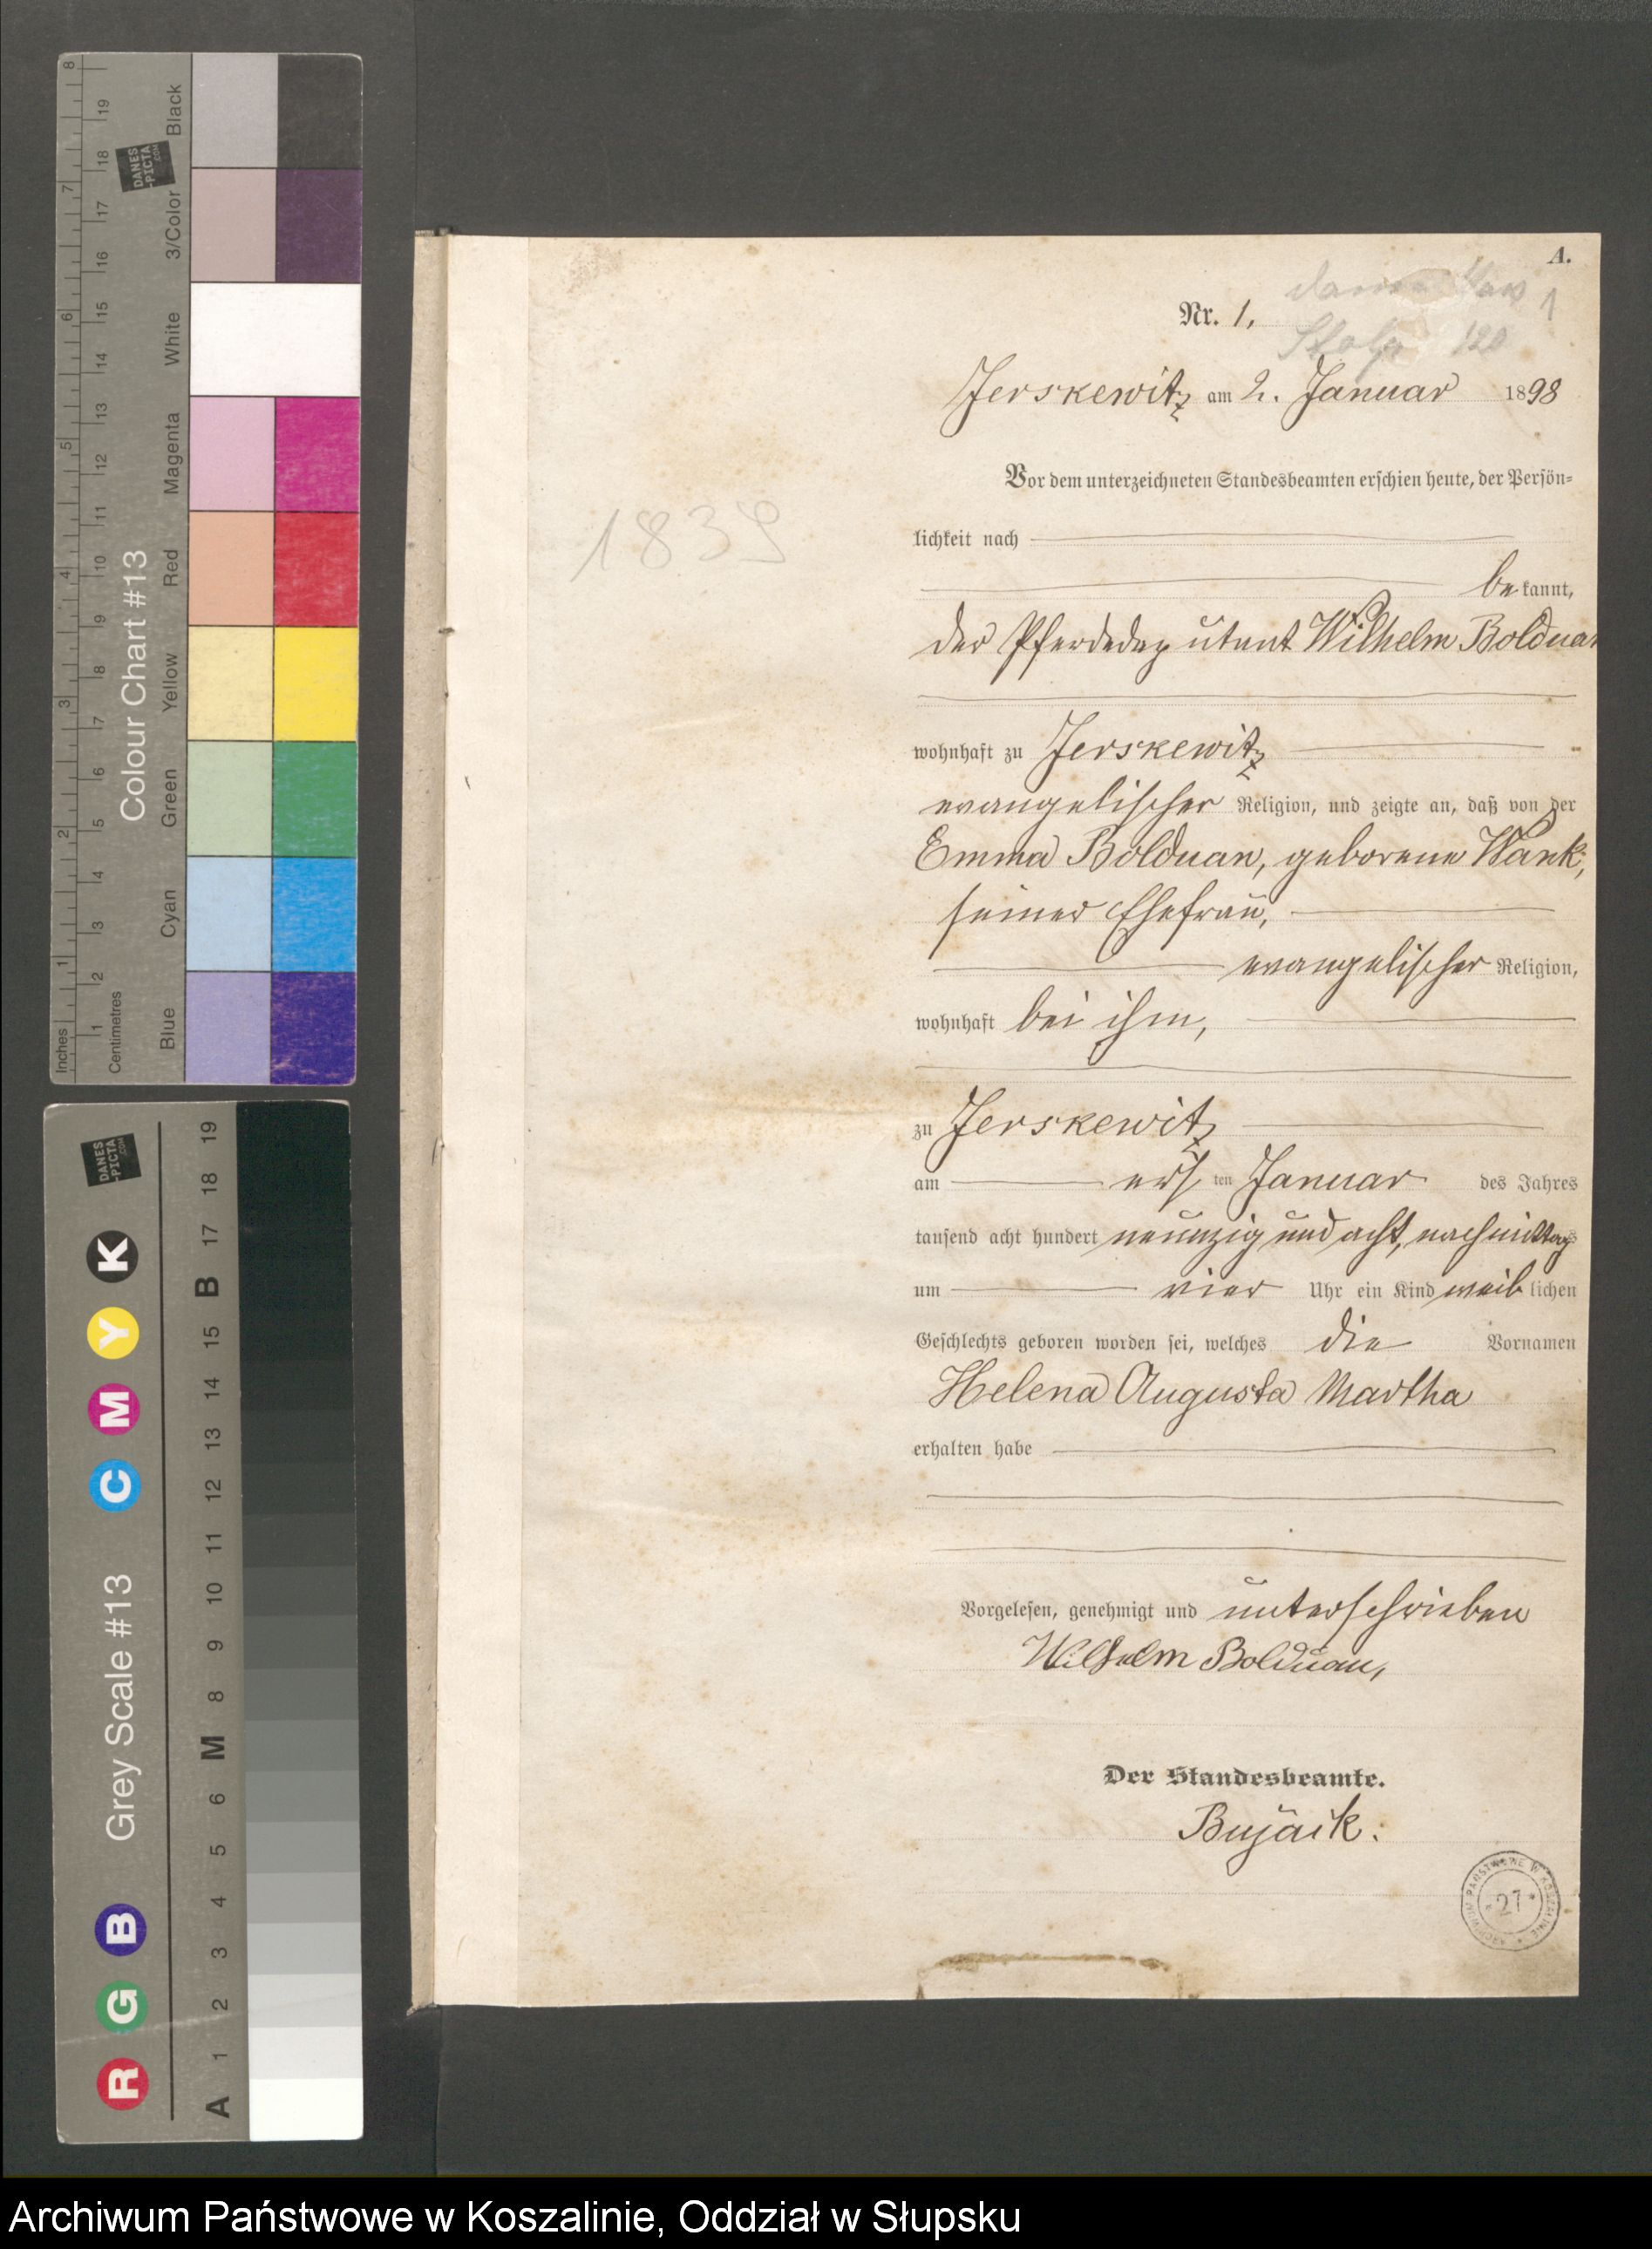 8 7 6 5 4 3 2 1 Inches
19 18 17 16 15 14 13 12 11 10 9 8 7 6 5 4 3 2 1 Centimetres
DANES
-PICTA
.COM
Colour Chart #13
Black
3/Color
White
Magenta
Red
Yellow
Green
Cyan
Blue
DANES
-PICTA
.COM
Grey Scale #13
K
Y
M
C
B
G
R
19
18
17
B
15
14
13
12
11
10
9
8
M
6
5
4
3
2
1
A
A.
Nr. 1,
1
120
Jerskewitz am 2. Januar 1898
1839
Vor dem unterzeichneten Standesbeamten erschien heute, der Persön-
lichkeit nach
bekannt,
der Wilhelm Bolduan
wohnhaft zu Jerskewitz
evangelischer Religion, und zeigte an, daß von der
Emma Bolduan, geborene Wank,
seiner Ehefrau,
evangelischer Religion,
wohnhaft bei ihm,
zu Jerskewitz
am ersten Januar des Jahres
tausend acht hundert neunzig und acht, nachmittags
um vier Uhr ein Kind weiblichen
Geschlechts geboren worden sei, welches die Vornamen
Helena Augusta Martha
erhalten habe
Vorgelesen, genehmigt und unterschrieben
Wilhelm Bolduan,
Der Standesbeamte.
ARCHIWUM PAŃSTWOWE W KOSZALINIE
* 27 *
Archiwum Państwowe w Koszalinie, Oddział w Słupsku